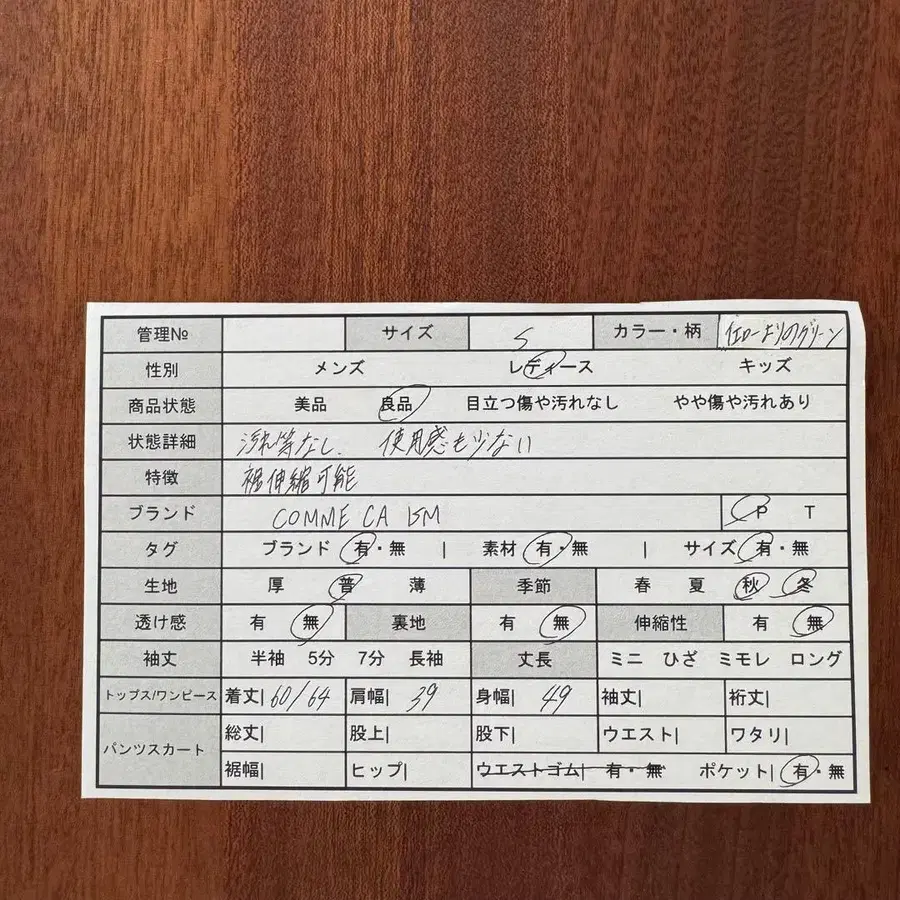 管理№ サイズ S カラー・柄 イエローよりのグリーン
性別 メンズ レディース キッズ
商品状態 美品 良品 目立つ傷や汚れなし やや傷や汚れあり
状態詳細 汚れ等なし、 使用感も少ない
特徴 裾伸縮可能
ブランド COMME CA ISM P T
タグ ブランド 有・無 | 素材 有・無 | サイズ 有・無
生地 厚 普 薄 季節 春 夏 秋 冬
透け感 有 無 裏地 有 無 伸縮性 有 無
袖丈 半袖 5分 7分 長袖 丈長 ミニ ひざ ミモレ ロング
トップス/ワンピース 着丈| 60/64 肩幅| 39 身幅| 49 袖丈| 裄丈|
パンツスカート 総丈| 股上| 股下| ウエスト| ワタリ|
裾幅| ヒップ| ウエストゴム| 有・無 ポケット| 有・無